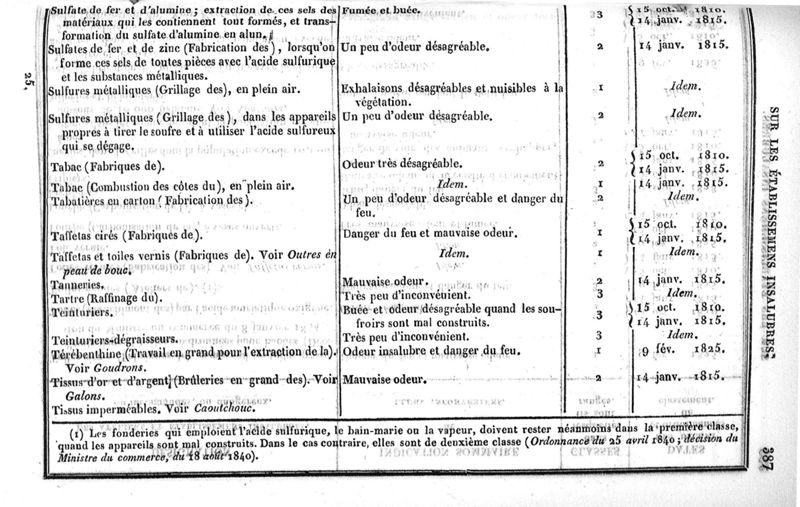 Sulfate de fer et d'alumine; extraction de ces sels des Fumée et buée. 3 15 oct. 1810.
matériaux qui les contiennent tout formés, et trans- 14 janv. 1815.
formation du sulfate d'alumine en alun.
Sulfates de fer et de zinc (Fabrication des), lorsqu'on Un peu d'odeur désagréable. 2 14 janv. 1815.
forme ces sels de toutes pièces avec l'acide sulfurique
et les substances métalliques.
Sulfures métalliques (Grillage des), en plein air. Exhalaisons désagréables et nuisibles à la 1 Idem.
végétation.
Sulfures métalliques (Grillage des), dans les appareils Un peu d'odeur désagréable. 2 Idem.
propres à tirer le soufre et à utiliser l'acide sulfureux
qui se dégage.
Tabac (Fabriques de). Odeur très désagréable. 2 15 oct. 1810.
14 janv. 1815.
Tabac (Combustion des côtes du), en plein air. Idem. 1 14 janv. 1815.
Tabatières en carton (Fabrication des). Un peu d'odeur désagréable et danger du 2 Idem.
feu.
Taffetas cirés (Fabriques de). Danger du feu et mauvaise odeur. 1 15 oct. 1810.
14 janv. 1815.
Taffetas et toiles vernis (Fabriques de). Voir Outres en Idem. 1 Idem.
peau de bouc.
Tanneries. Mauvaise odeur. 2 14 janv. 1815.
Tartre (Raffinage du). Très peu d'inconvénient. 3 Idem.
Teinturiers. Buée et odeur désagréable quand les sou- 3 15 oct. 1810.
froirs sont mal construits. 14 janv. 1815.
Teinturiers-dégraisseurs. Très peu d'inconvénient. 3 Idem.
Térébenthine (Travail en grand pour l'extraction de la). Odeur insalubre et danger du feu. 1 9 fév. 1825.
Voir Goudrons.
Tissus d'or et d'argent (Brûleries en grand des). Voir Mauvaise odeur. 2 14 janv. 1815.
Galons.
Tissus imperméables. Voir Caoutchouc.
(1) Les fonderies qui emploient l'acide sulfurique, le bain-marie ou la vapeur, doivent rester néanmoins dans la première classe,
quand les appareils sont mal construits. Dans le cas contraire, elles sont de deuxième classe (Ordonnance du 25 avril 1840; décision du
Ministre du commerce, du 18 août 1840).
25.
SUR LES ÉTABLISSEMENS INSALUBRES.
387